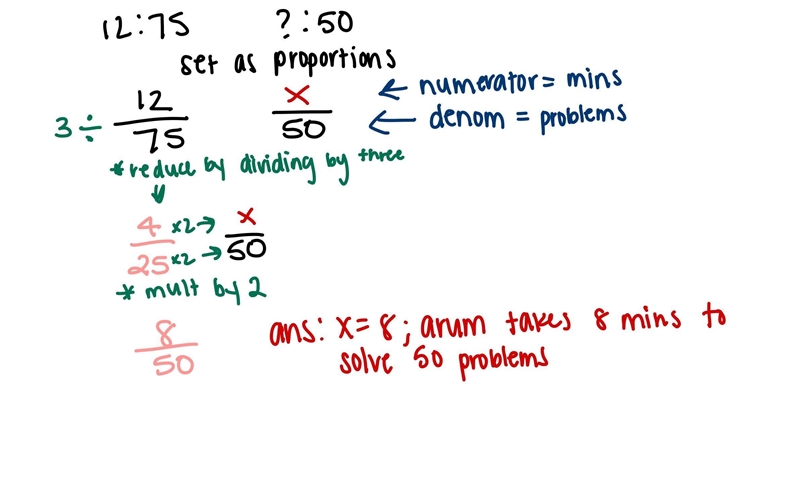 12:75 ?:50
set as proportions
12 x ← numerator = mins
3 ÷ 75 50 ← denom = problems
*reduce by dividing by three
↓
4 x2→ x
25 x2→ 50
* mult by 2
8 ans: x=8; arum takes 8 mins to
50 solve 50 problems